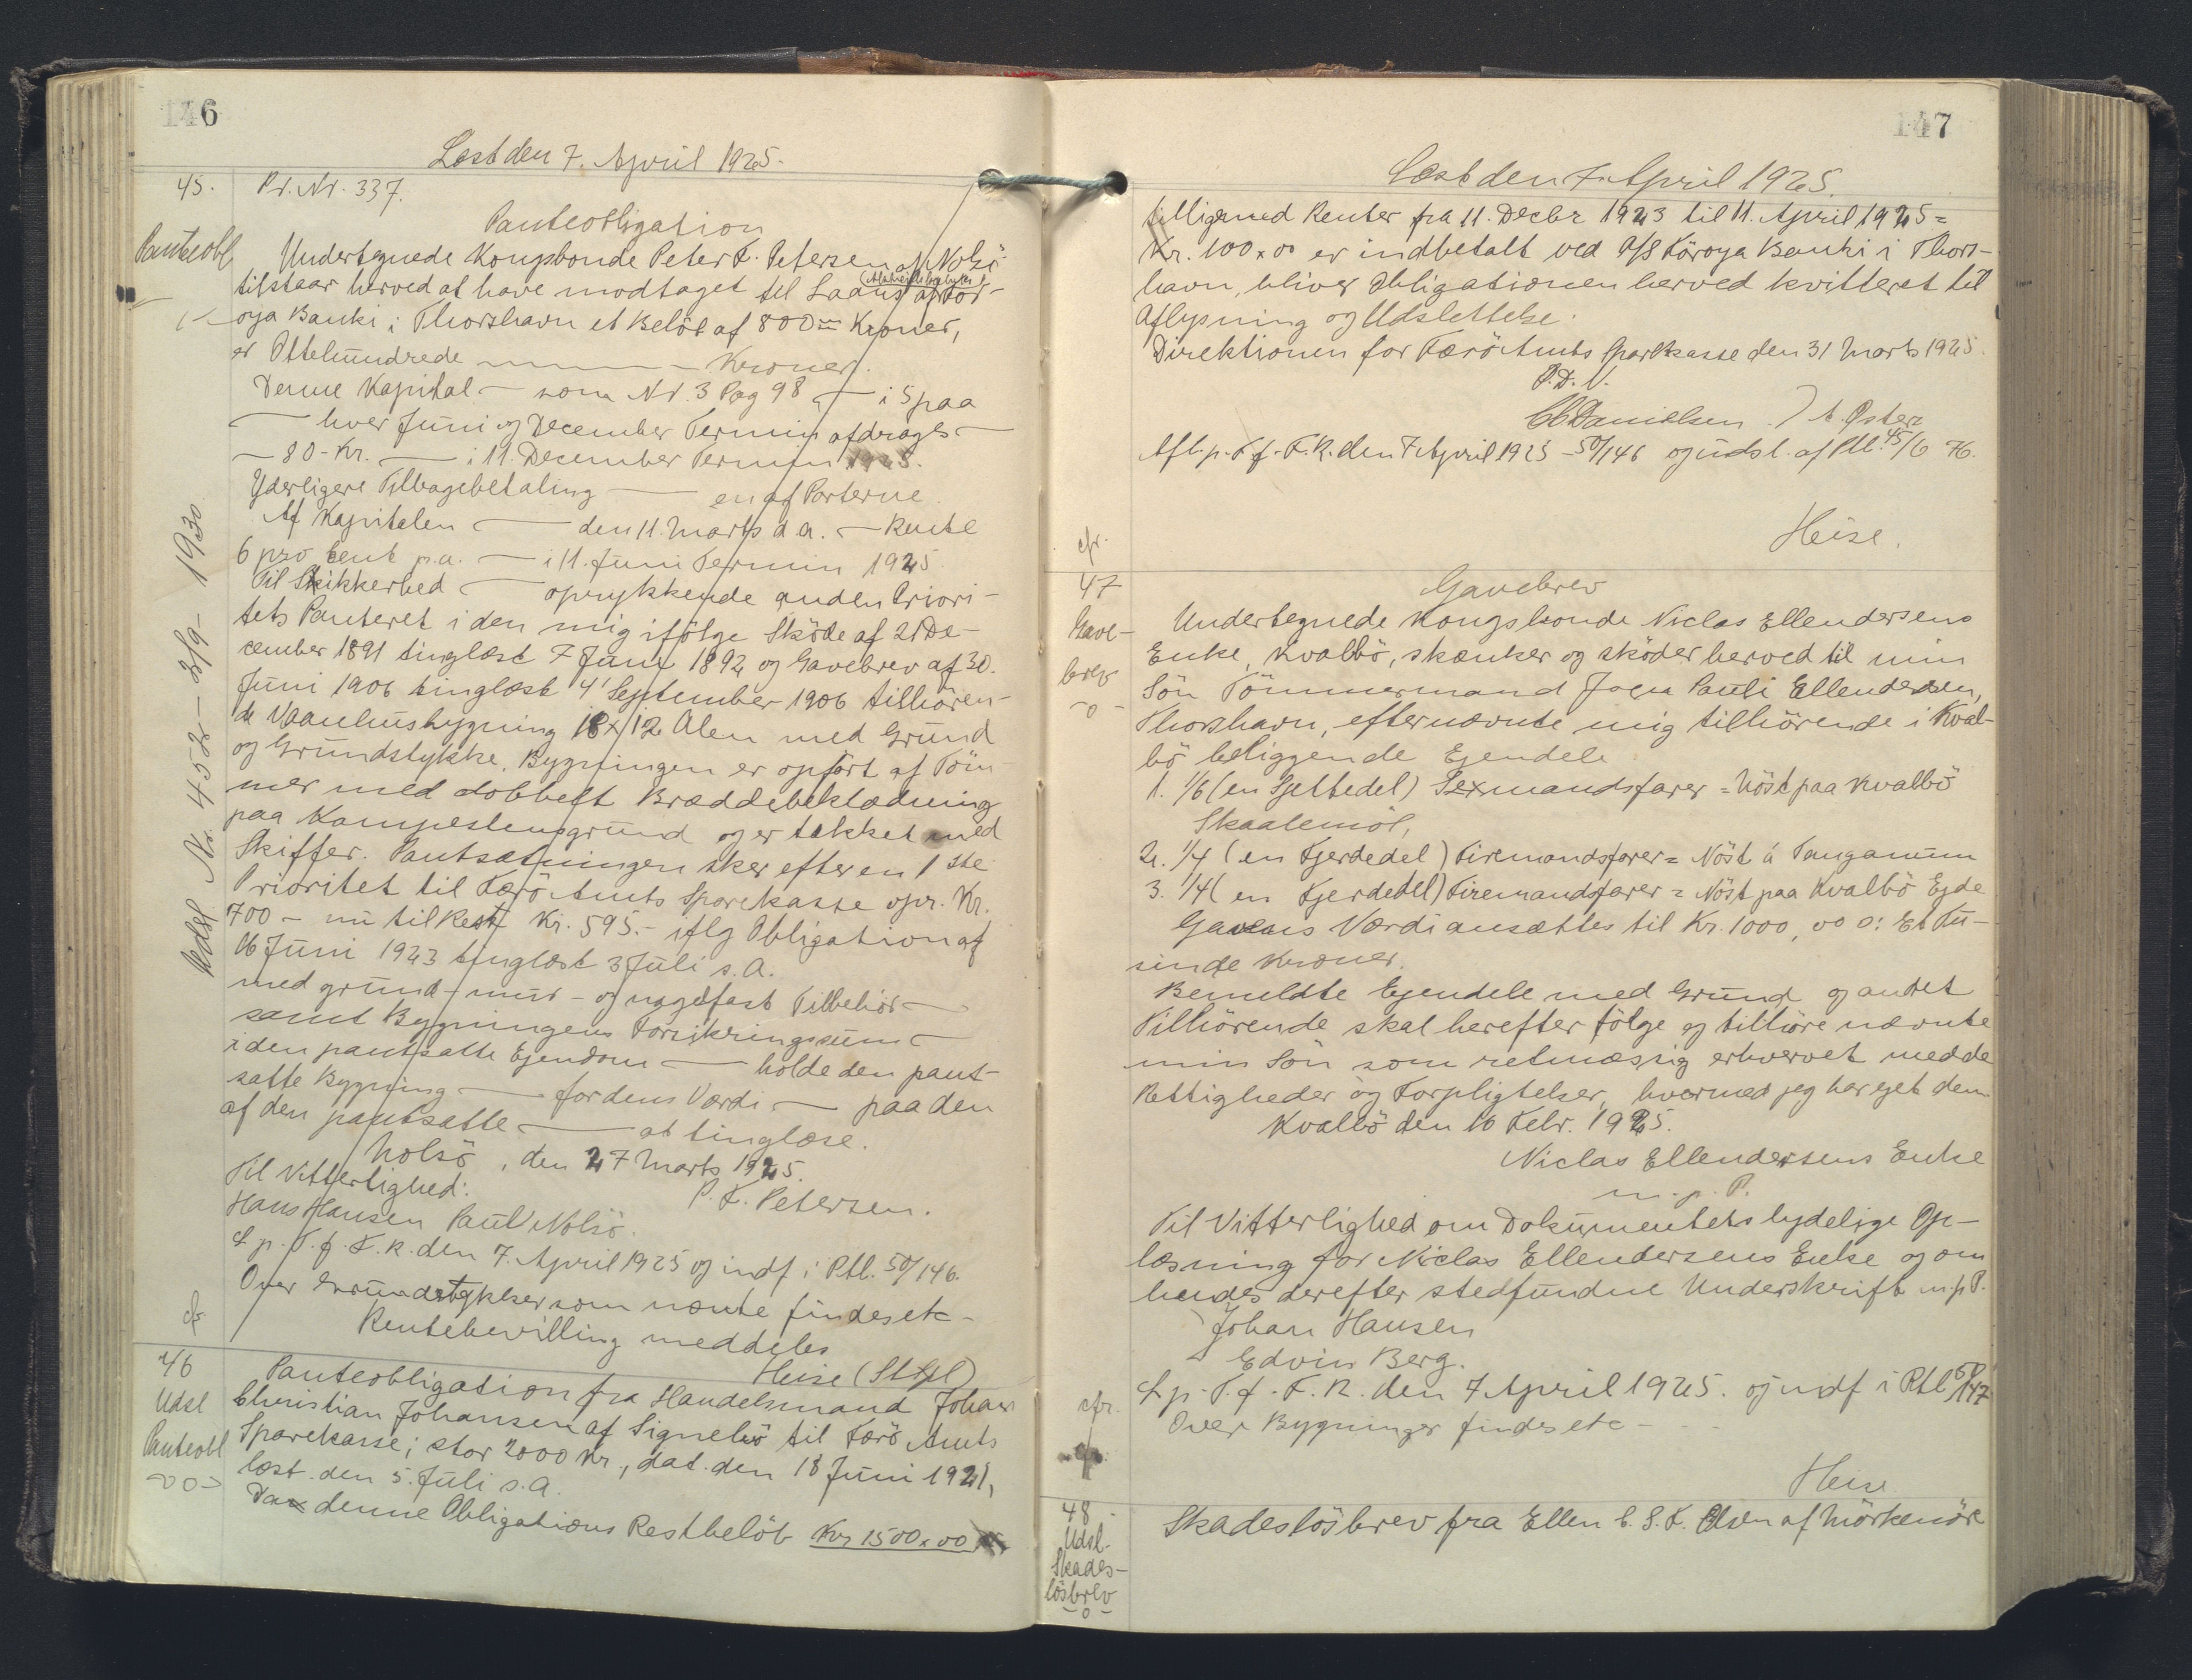 146
Læst den 7. April 1925.
45.
Pr. Nr. 337.
Panteobligation
Panteobl
Undertegnede Kongsbonde Peter F. Petersen af Nolsö
tilstaar herved at have modtaget til Laans af För-
oya Banki i Thorshavn et Belöb af 800 Kroner,
er Ottehundrede — Kroner.
Denne Kapital — som Nr. 3 Pag 98 — i 5 paa
— hver Juni og December Termin afdrages —
— 80 - Kr. — i 11. December Termin 1925.
Yderligere Tilbagebetaling — en af Parterne.
Af Kapitalen — den 11. Marts d. a. — Rente
6 pro Cent p.a. — i 11. Juni Termin 1925
Til Sikkerhed — oprykkende anden Priori-
tets Panteret i den mig ifölge Sköde af 21 De-
cember 1891 tinglæst 7 Juni 1892 og Gavebrev af 30.
Juni 1906 tinglæst 4' September 1906 tilhören-
de Vaanhusbygning 18 x 12 Alen med Grund
og Grundstykke. Bygningen er opfört af Töm-
mer med dobbelt Bræddebeklædning
paa Kampestensgrund og er tækket med
Skiffer. Pantsætningen sker efter en 1 ste
Prioritet til Færö Amts Sparekasse opr. Kr.
700 - nu til Rest Kr. 595.- iflg Obligation af
16 Juni 1923 tinglæst 3 Juli s. A.
med grund - mur - og naglefast Tilbehör —
samt Bygningens Forsikringssum —
i den pantsatte Ejendom — holde den pant-
satte Bygning — for dens Værdi — paa den
af den pantsatte — at tinglæse.
Nolsö, den 27 Marts 1925.
Til Vitterlighed:
P. F. Petersen.
Hans Hansen Paul Nolsö.
L. p. T. f. F. R. den 7. April 1925 og indf i Ptl. 50/146.
Over Grundstykker som nævnte findes etc -
Rentebevilling meddeles
Heise (St)
cfr
Udsl Nr. 452 - 2/9 - 1930
46
Udsl
Panteobl
Panteobligation fra Handelsmand Johan
Christian Johansen af Signebö til Færö Amts
Sparekasse; stor 2000 Kr, dat. den 18 Juni 1921,
læst den 5. Juli s. A.
Da denne Obligations Restbelöb Kr 1500 x 00
147
Læst den 7. April 1925.
tilligemed Renter fra 11. Decbr 1923 til 11. April 1925 =
Kr. 100 x 00 er indbetalt ved A/S Föroya Banki i Thors-
havn, bliver Obligationen herved kvitteret til
Aflysning og Udslettelse.
Direktionen for Færö Amts Sparekasse den 31 Marts 1925.
P. D. V.
C C Danielsen / A. Öster
Afl. p. T. f. F. R. den 7 April 1925 - 50/146 og udsl. af Ptl. 45/6 76.
Heise.
cfr.
47
Gave-
brev
Gavebrev
Undertegnede Kongsbonde Niclas Ellendersens
Enke, Kvalbö, skænker og sköder herved til min
Sön Tömmermand Jógvan Pauli Ellendersen,
Thorshavn, efternævnte mig tilhörende i Kval-
bö beliggende Ejendele
1. 1/6 (en Sjettedel) Sexmandsfarer = Nöst paa Kvalbö
Skaalemöl,
2. 1/4 (en Fjerdedel) Firemandsfarer = Nöst á Tanganum
3. 1/4 (en Fjerdedel) Firemandsfarer = Nöst paa Kvalbö Ejde
Gavens Værdi ansættes til Kr. 1000,00 o: Et Tu-
sinde Kroner.
Bemeldte Ejendele med Grund og andet
Tilhörende skal herefter fölge og tilhöre nævnte
min Sön som retmæssig erhvervet med de
Rettigheder og Forpligtelser, hvormed jeg har ejet dem
Kvalbö den 16 Febr. 1925.
Niclas Ellendersens Enke
m. p. P.
Til Vitterlighed om Dokumentets lydelige Op-
læsning for Niclas Ellendersens Enke og om
hendes derefter stedfundne Underskrift m. p. P.
Johan Hansen
Edvin Berg.
L. p. T. f. F. R. den 7 April 1925. og indf i Ptl 50/147
cfr.
Over Bygninger findes etc -
Heise
48
Udsl.
Skades-
lösbrev
Skadeslösbrev fra Ellen C. S. F. Olsen af Mörkenöre